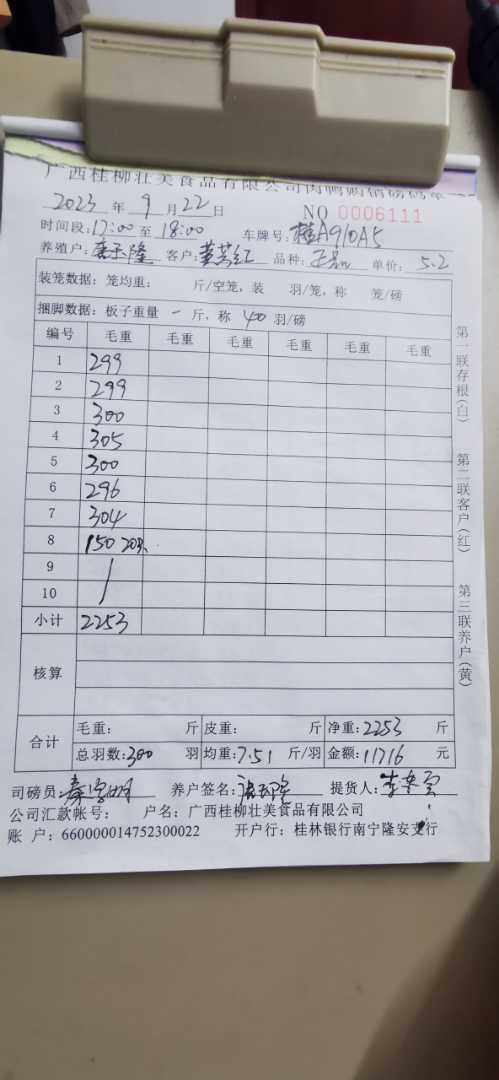 广西桂柳壮美食品有限公司肉鸭购销磅码单
2023 年 9 月 22 日 NO 0006111
时间段:17:00 至 18:00 车牌号:桂A910A5
养殖户: 隆 客户: 红 品种: 单价: 5.2
装笼数据: 笼均重: 斤/空笼, 装 羽/笼, 称 笼/磅
捆脚数据: 板子重量 一 斤, 称 40 羽/磅
编号 毛重 毛重 毛重 毛重 毛重 毛重
1 299
2 299
3 300
4 305
5 300
6 296
7 304
8 150 20羽
9
10
小计 2253
核算
合计 毛重: 斤 皮重: 斤 净重:2253 斤
总羽数:300 羽 均重:7.51 斤/羽 金额:11716 元
司磅员: 养户签名: 隆 提货人:
公司汇款帐号: 户名:广西桂柳壮美食品有限公司
账 户: 660000014752300022 开户行: 桂林银行南宁隆安支行
第一联存根(白)
第二联客户(红)
第三联养户(黄)